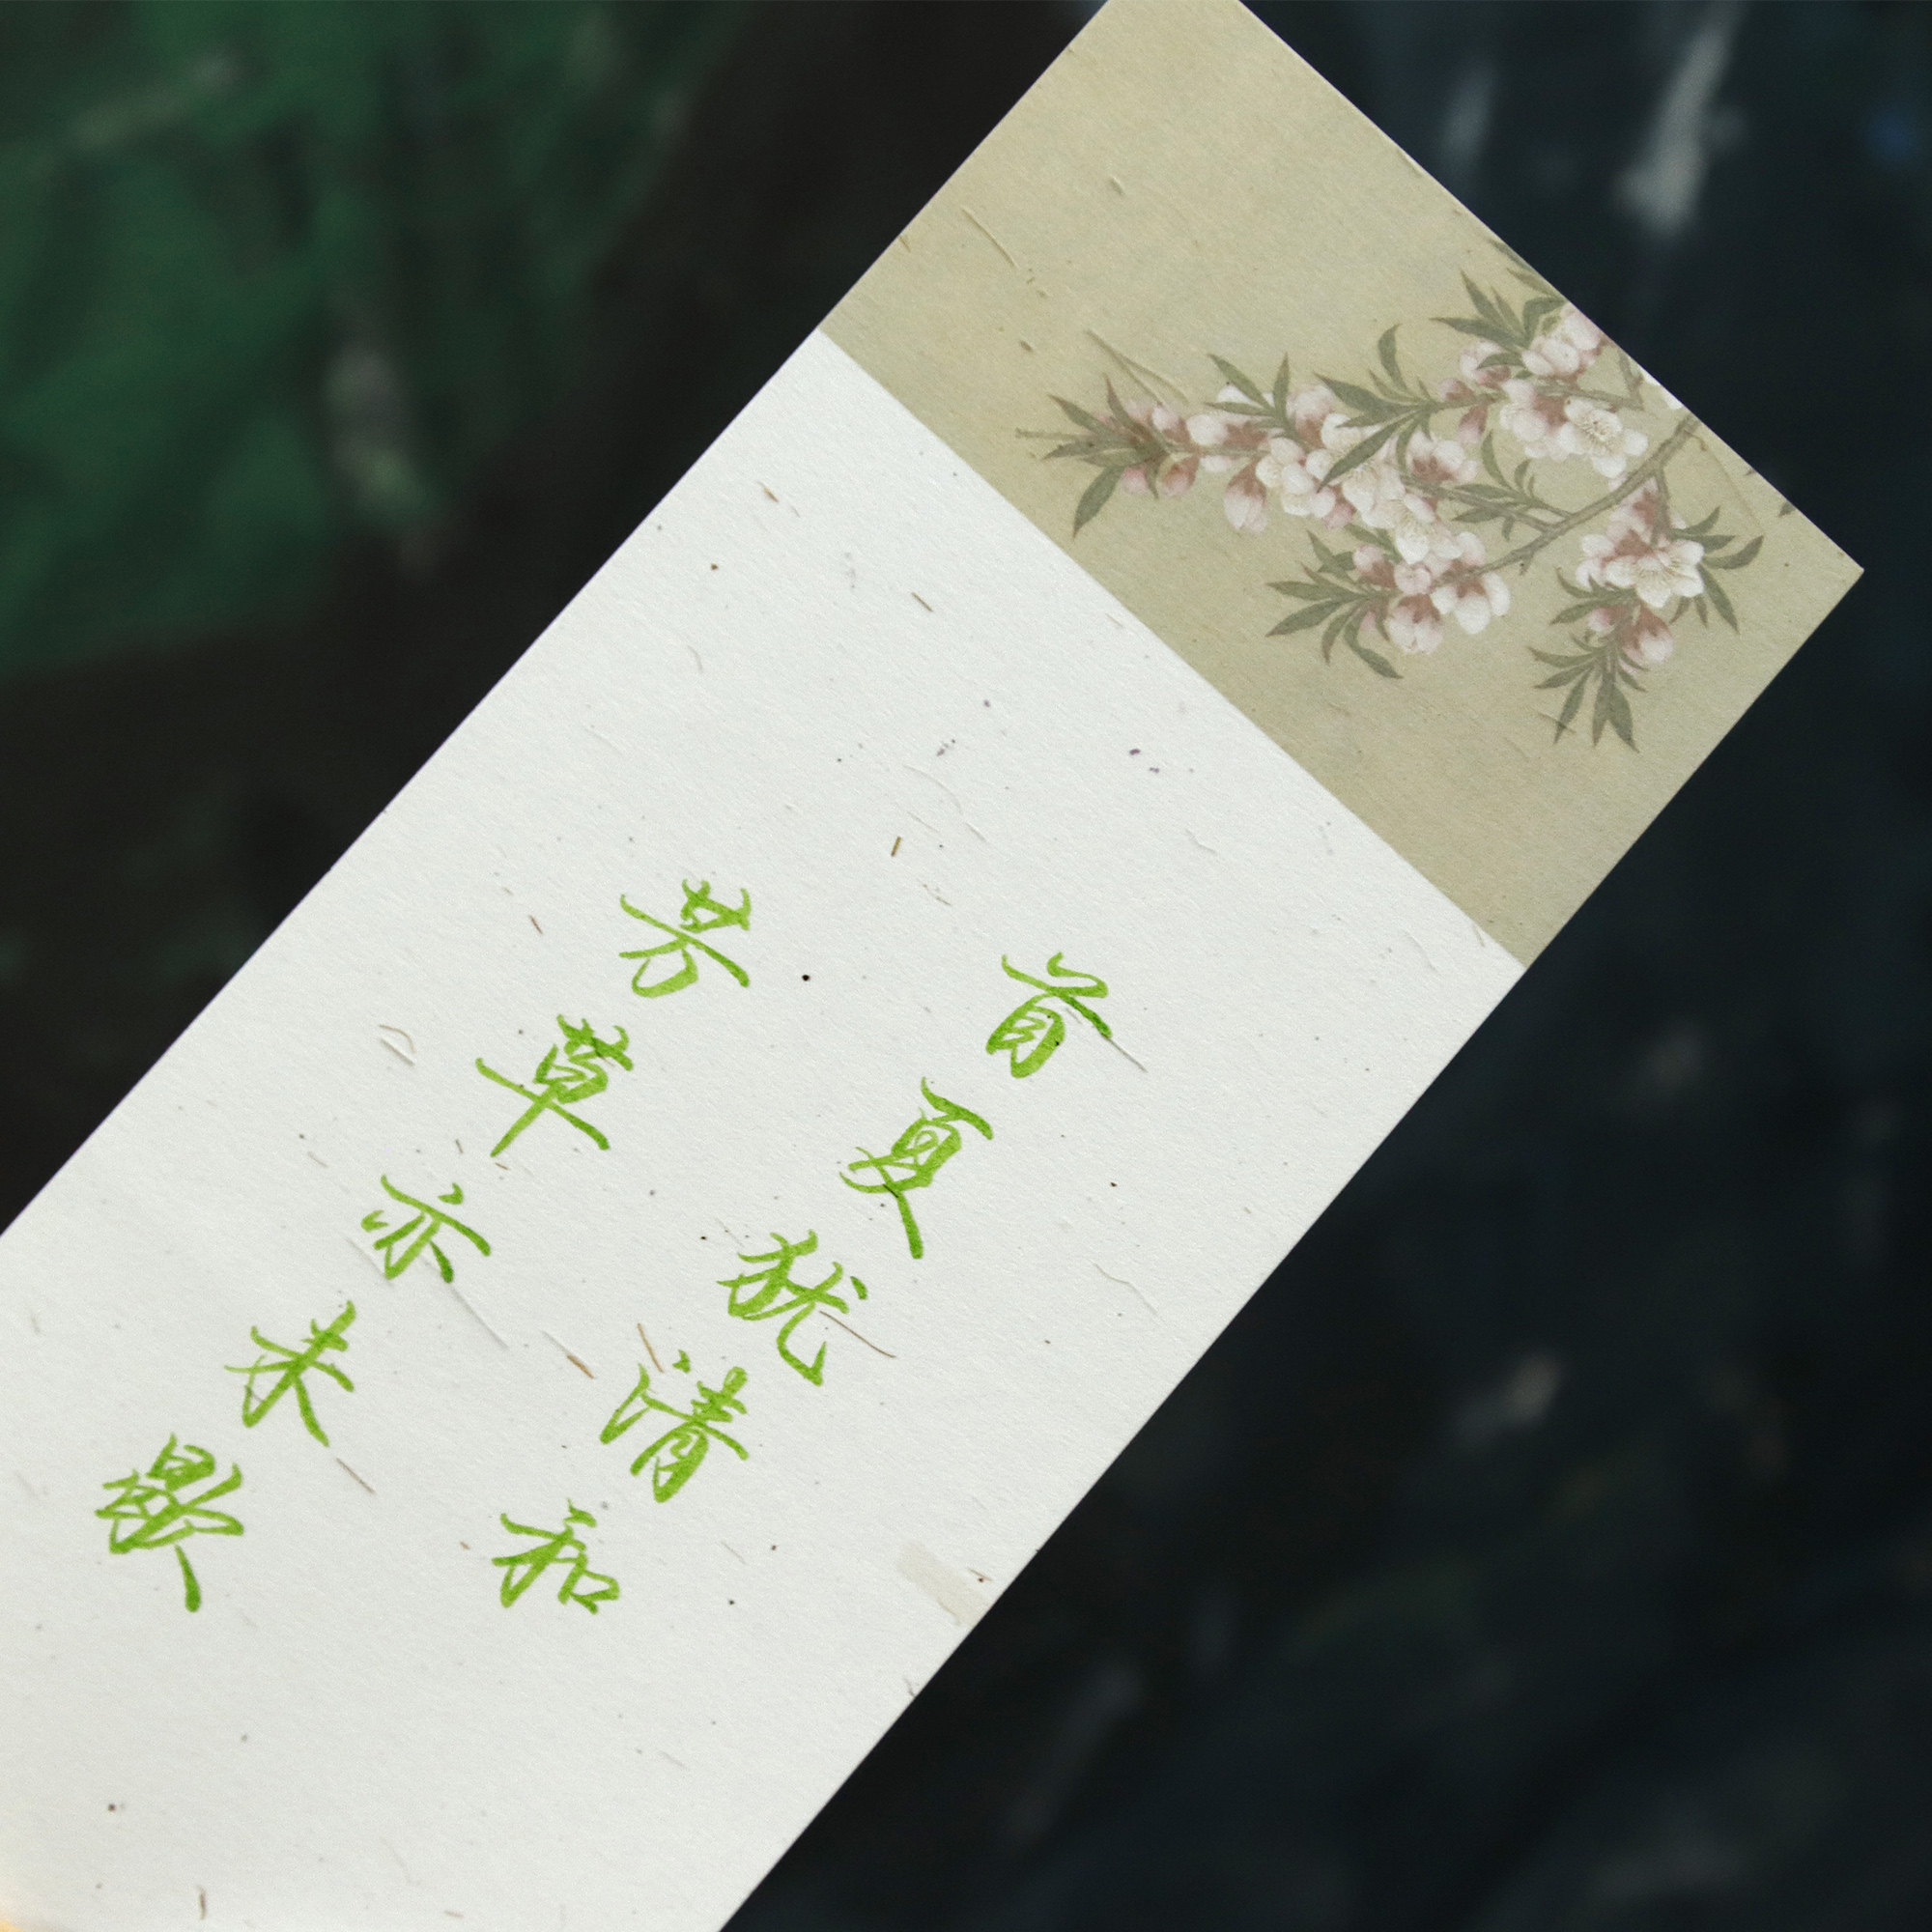 首夏犹清和
芳草亦未歇